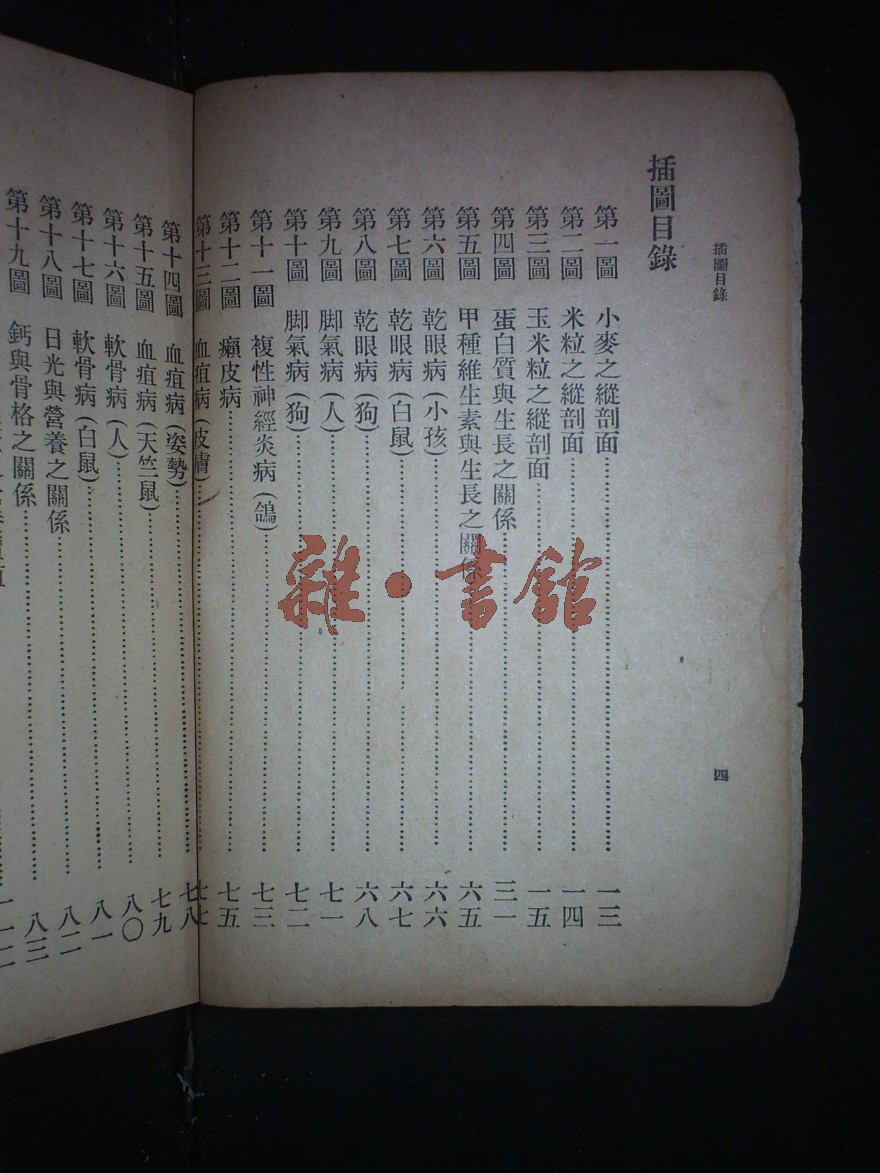 插圖目錄
四
插圖目錄
第一圖 小麥之縱剖面 一三
第二圖 米粒之縱剖面 一四
第三圖 玉米粒之縱剖面 一五
第四圖 蛋白質與生長之關係 三一
第五圖 甲種維生素與生長之關係 六五
第六圖 乾眼病(小孩) 六六
第七圖 乾眼病(白鼠) 六七
第八圖 乾眼病(狗) 六八
第九圖 脚氣病(人) 七一
第十圖 脚氣病(狗) 七二
第十一圖 複性神經炎病(鴿) 七三
第十二圖 癩皮病 七五
第十三圖 血疽病(皮膚) 七七
第十四圖 血疽病(姿勢) 七八
第十五圖 血疽病(天竺鼠) 七九
第十六圖 軟骨病(人) 八〇
第十七圖 軟骨病(白鼠) 八一
第十八圖 日光與營養之關係 八二
第十九圖 鈣與骨格之關係 八三
雜·書館